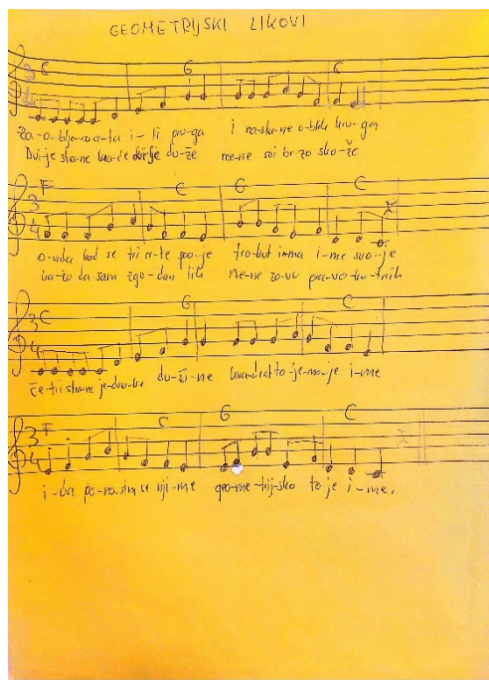 GEOMETRIJSKI LIKOVI
3 4 C G C
Za-o-blje-na cr-ta i-li pru-ga i na-sta-ne o-blik kru-ga
Dvi-je stra-ne kra-će dvije du-že me-ne svi br-zo slo-že
3 4 F C G C
o-nda kad se tri cr-te spo-je tro-kut imma i-me svo-je
ka-žu da sam zgo-dan lik me-ne zo-vu pra-vo-ku-tnik
3 4 C G C
če-tri stra-ne je-dna-ke du-ži-ne kva-drat to-je-mo-je i-me
3 4 F C G C
i-da po-na-sim se nji-me geo-me-trij-sko to je i-me.